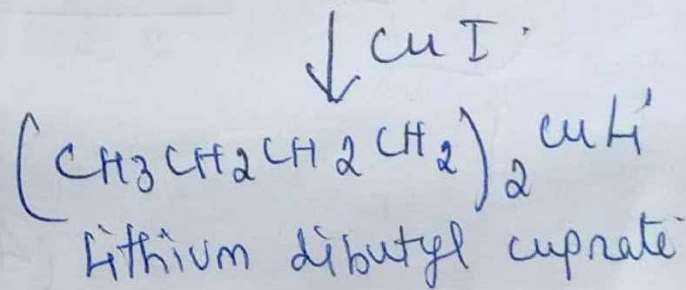 ↓ CuI.
(CH3CH2CH2CH2)2CuLi
Lithium dibutyl cuprate